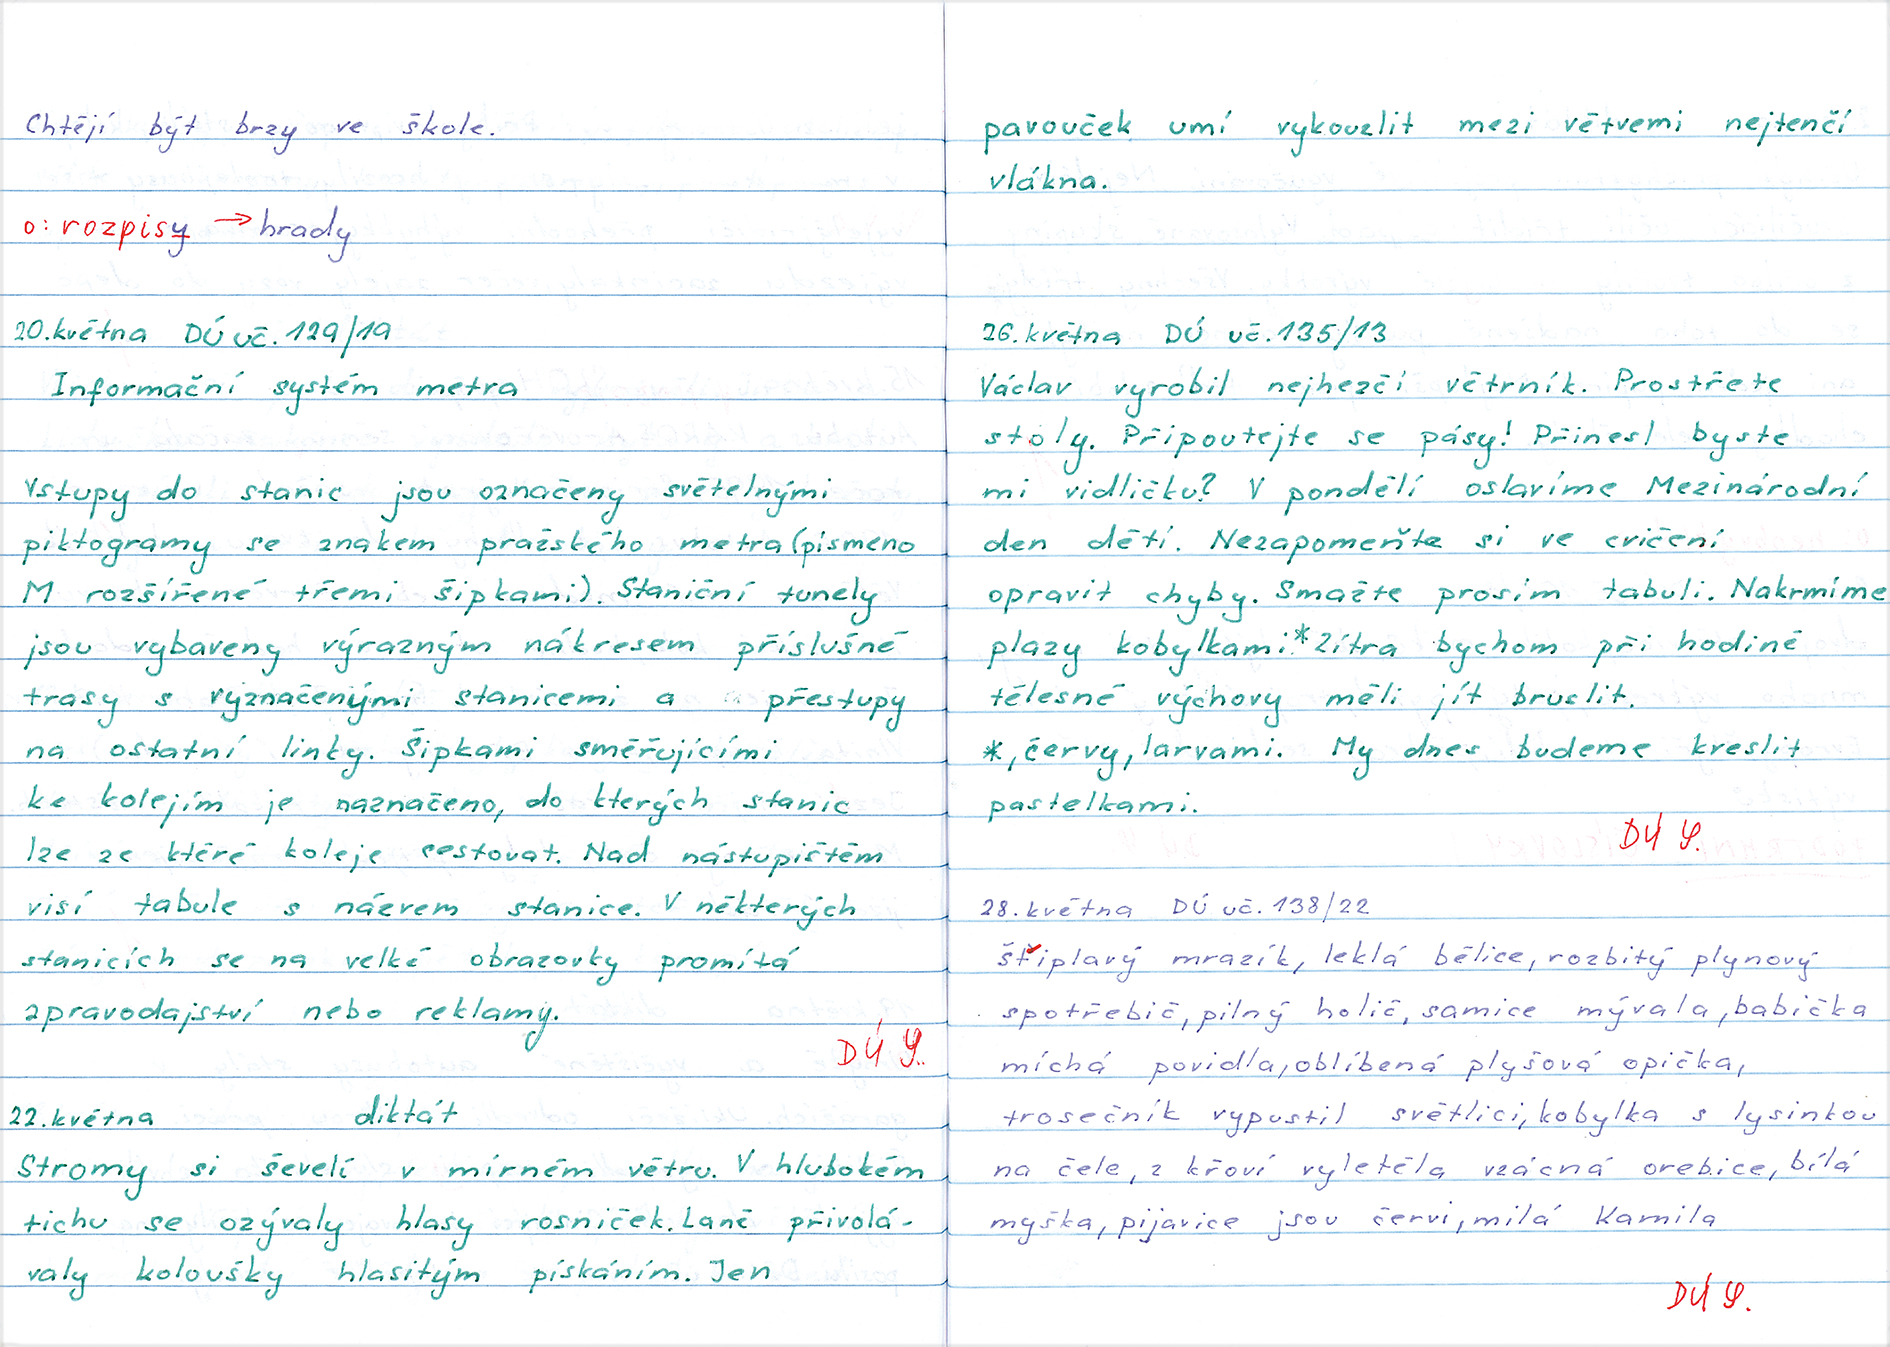 Chtějí být brzy ve škole.
o: rozpisy → hrady
20. května DÚ uč. 129/19
Informační systém metra
Vstupy do stanic jsou označeny světelnými
piktogramy se znakem pražského metra (písmeno
M rozšířené třemi šipkami). Staniční tunely
jsou vybaveny výrazným nákresem příslušné
trasy s vyznačenými stanicemi a přestupy
na ostatní linky. Šipkami směřujícími
ke kolejím je naznačeno, do kterých stanic
lze ze které koleje cestovat. Nad nástupištěm
visí tabule s názvem stanice. V některých
stanicích se na velké obrazovky promítá
zpravodajství nebo reklamy.
DÚ
22. května diktát
Stromy si ševelí v mírném větru. V hlubokém
tichu se ozývaly hlasy rosniček. Laně přivolá-
valy koloušky hlasitým pískáním. Jen
pavouček umí vykouzlit mezi větvemi nejtenčí
vlákna.
26. května DÚ uč. 135/13
Václav vyrobil nejhezčí větrník. Prostřete
stoly. Připoutejte se pásy! Přinesl byste
mi vidličku? V pondělí oslavíme Mezinárodní
den dětí. Nezapomeňte si ve cvičení
opravit chyby. Smažte prosím tabuli. Nakrmíme
plazy kobylkami.* Zítra bychom při hodině
tělesné výchovy měli jít bruslit.
*, červy, larvami. My dnes budeme kreslit
pastelkami.
DÚ
28. května DÚ uč. 138/22
štiplavý mrazík, leklá bělice, rozbitý plynový
spotřebič, pilný holič, samice mývala, babička
míchá povidla, oblíbená plyšová opička,
trosečník vypustil světlici, kobylka s lysinkou
na čele, z křoví vyletěla vzácná orebice, bílá
myška, pijavice jsou červi, milá Kamila
DÚ